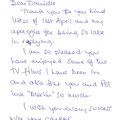 Dear Danielle
Thank you for you kind
letter of last April and my
apologies for being so late
in replying.
I am so pleased you
have enjoyed some of the
TV films I have been in
and also that you
like "Merlin" so much.
I wish you every success
with your career